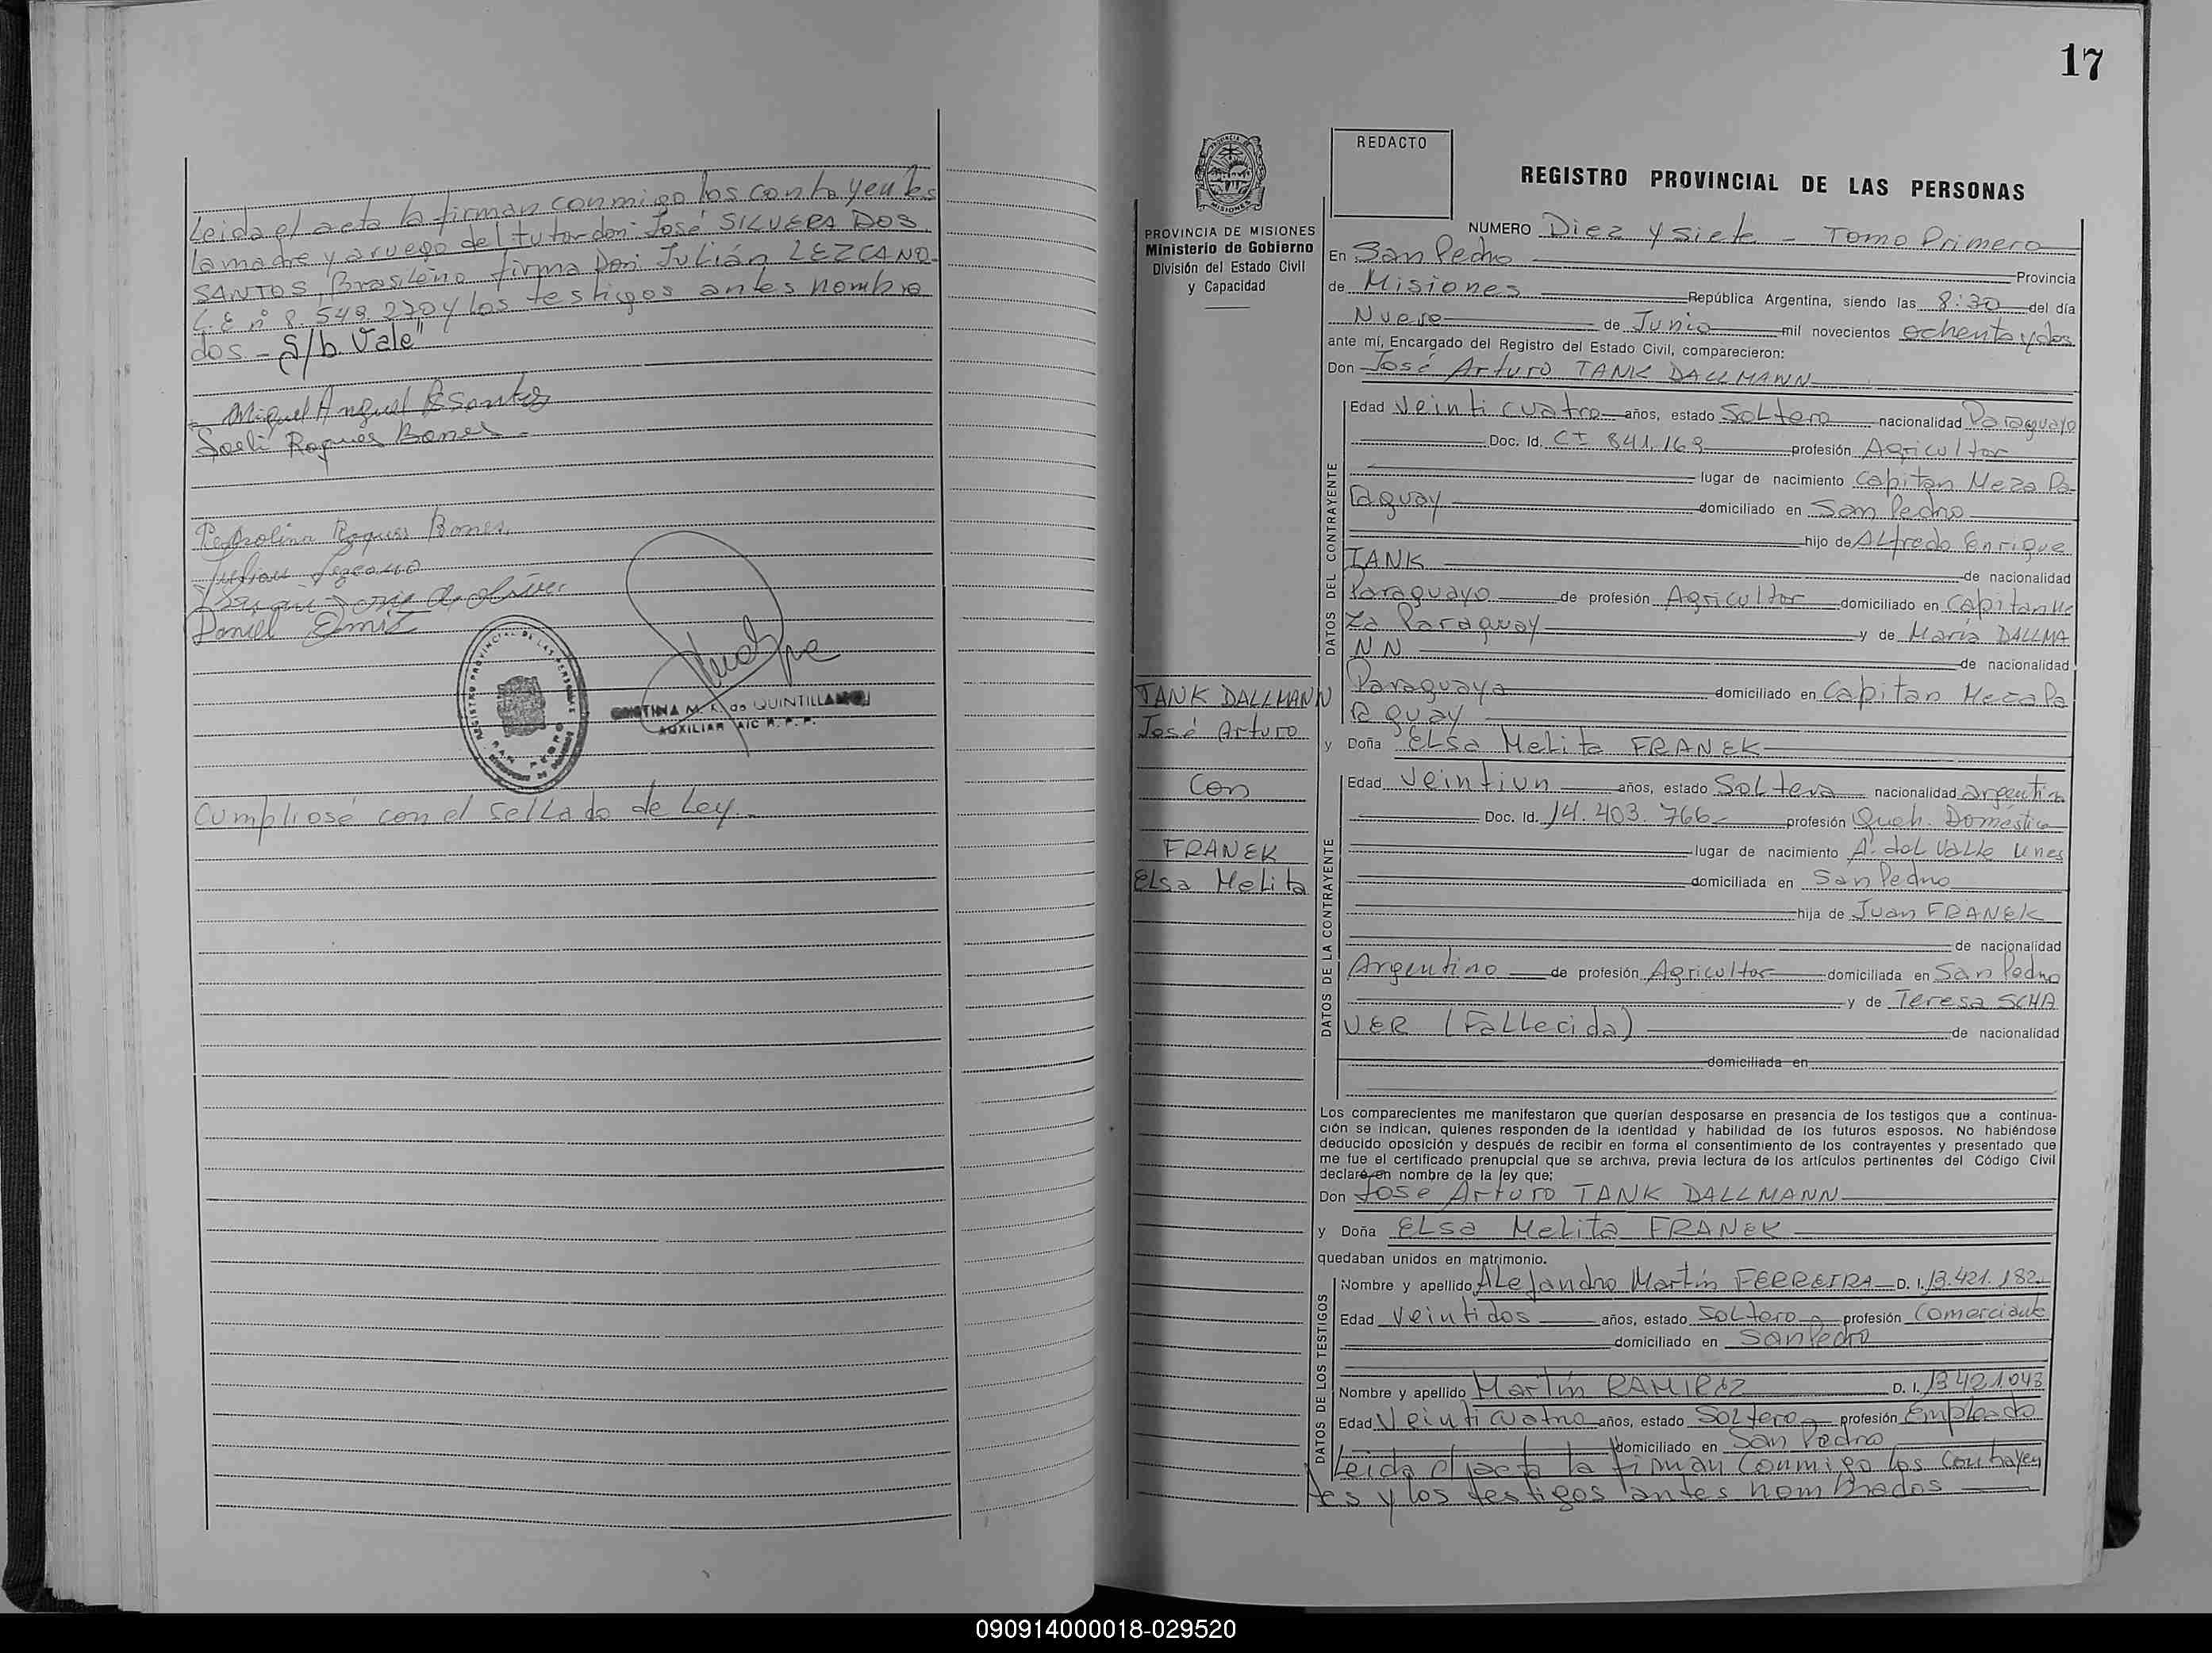 Leida el acta la firman conmigo los contrayentes
la madre y a ruego del tutor don: José SILVERA DOS
SANTOS, Brasileño firma Don: Julián LEZCANO
C.E nº 8.549.270 y los testigos antes nombra
dos - S/b. Vale"
Miguel Angel
Soeli Roques Bones
Roques Bones
Julian Lezcano
Daniel
REGISTRO PROVINCIAL DE LAS PERSONAS
SAN PEDRO
CRISTINA M. de QUINTILLAN
AUXILIAR A/C R. P. P.
Cumpliose con el sellado de Ley.-
17
PROVINCIA DE MISIONES
Ministerio de Gobierno
División del Estado Civil
y Capacidad
TANK DALLMANN
José Arturo
Con
FRANEK
Elsa Melita
REDACTO
REGISTRO PROVINCIAL DE LAS PERSONAS
NUMERO Diez y siete - Tomo Primero
En San Pedro Provincia
de Misiones República Argentina, siendo las 8:30 del día
Nueve de Junio mil novecientos ochenta y dos
ante mí, Encargado del Registro del Estado Civil, comparecieron:
Don José Arturo TANK DALLMANN
DATOS DEL CONTRAYENTE
Edad Veinti cuatro años, estado Soltero nacionalidad Paraguayo
Doc. Id. CI 841.169 profesión Agricultor
lugar de nacimiento Capitan Meza Pa-
raguay domiciliado en San Pedro
hijo de Alfredo Enrique
TANK de nacionalidad
Paraguayo de profesión Agricultor domiciliado en Capitan Me
za Paraguay y de María DALLMA
NN de nacionalidad
Paraguaya domiciliado en Capitan Meza Pa
raguay
y Doña Elsa Melita FRANEK
DATOS DE LA CONTRAYENTE
Edad Veintiun años, estado Soltera nacionalidad argentina
Doc. Id. 14.403.766- profesión Queh. Doméstico
lugar de nacimiento A. del Valle Mnes
domiciliada en San Pedro
hija de Juan FRANEK
de nacionalidad
Argentino de profesión Agricultor domiciliada en San Pedro
y de Teresa SCHA
VER (Fallecida) de nacionalidad
domiciliada en
Los comparecientes me manifestaron que querían desposarse en presencia de los testigos que a continua-
ción se indican, quienes responden de la identidad y habilidad de los futuros esposos. No habiéndose
deducido oposición y después de recibir en forma el consentimiento de los contrayentes y presentado que
me fue el certificado prenupcial que se archiva, previa lectura de los artículos pertinentes del Código Civil
declaré en nombre de la ley que;
Don Jose Arturo TANK DALLMANN
y Doña Elsa Melita FRANEK
quedaban unidos en matrimonio.
DATOS DE LOS TESTIGOS
Nombre y apellido Alejandro Martín FERREIRA D. I. 13.421.182
Edad Veintidos años, estado Soltero profesión Comerciante
domiciliado en San Pedro
Nombre y apellido Martín RAMIREZ D. I. 13421043
Edad Veinti cuatro años, estado Soltero profesión Empleado
domiciliado en San Pedro
Leida el acta la firman conmigo los contrayen
tes y los testigos antes nombrados
090914000018-029520